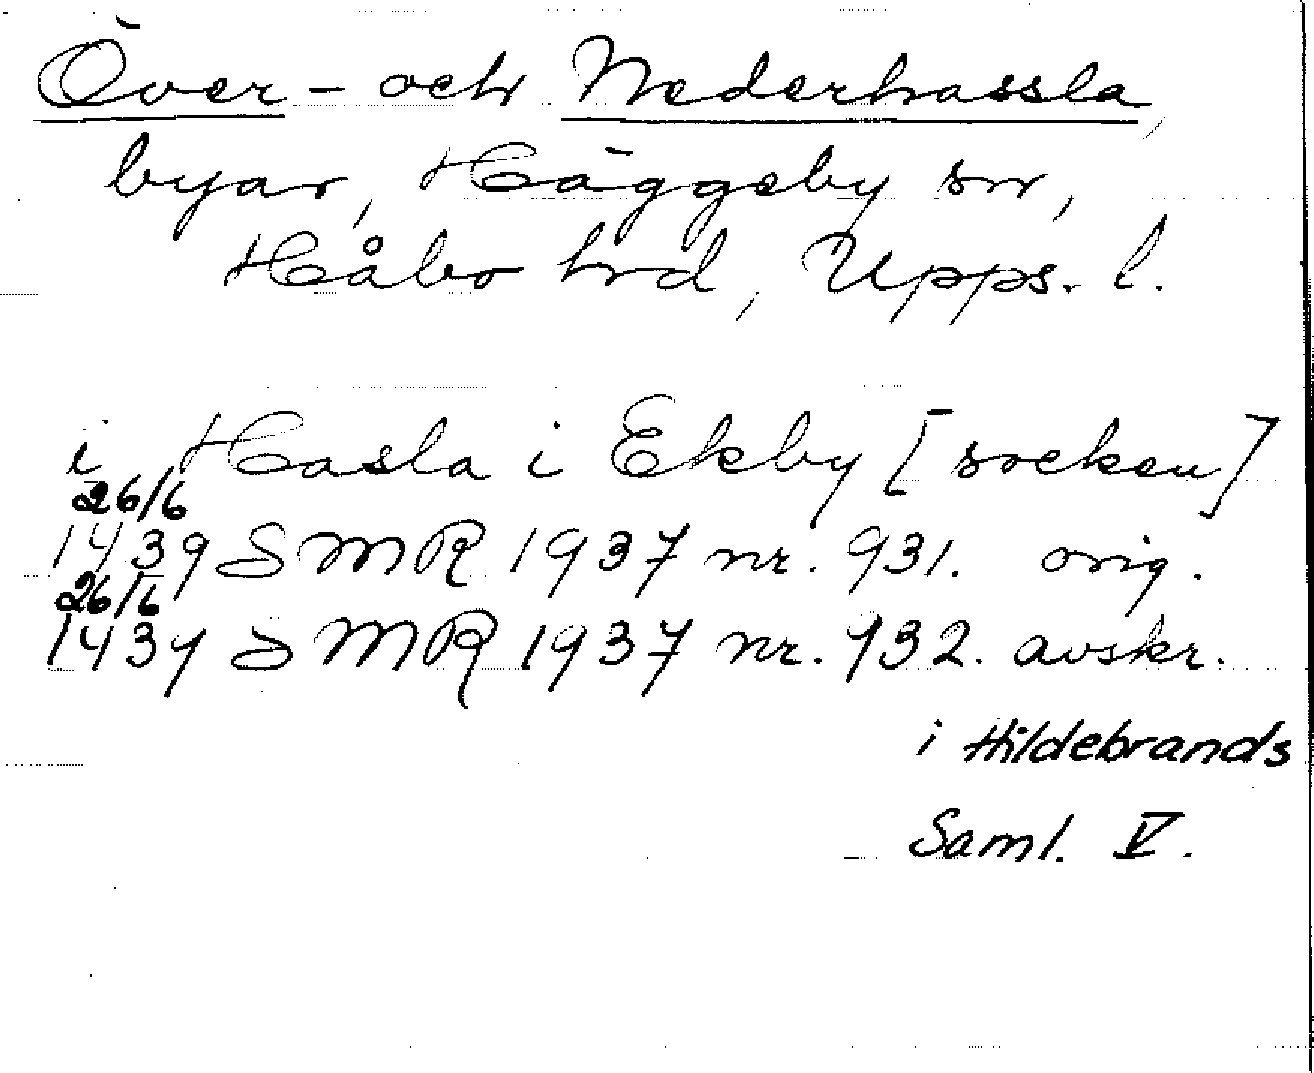 Över- och Nederhassla,
byar, Häggeby sn,
Håbo hrd, Upps. l.
i Hasla i Ekby [socken]
26/6
1439 SMR 1937 nr. 931. orig.
26/6
1439 SMR 1937 nr. 932. avskr.
i Hildebrands
Saml. V.